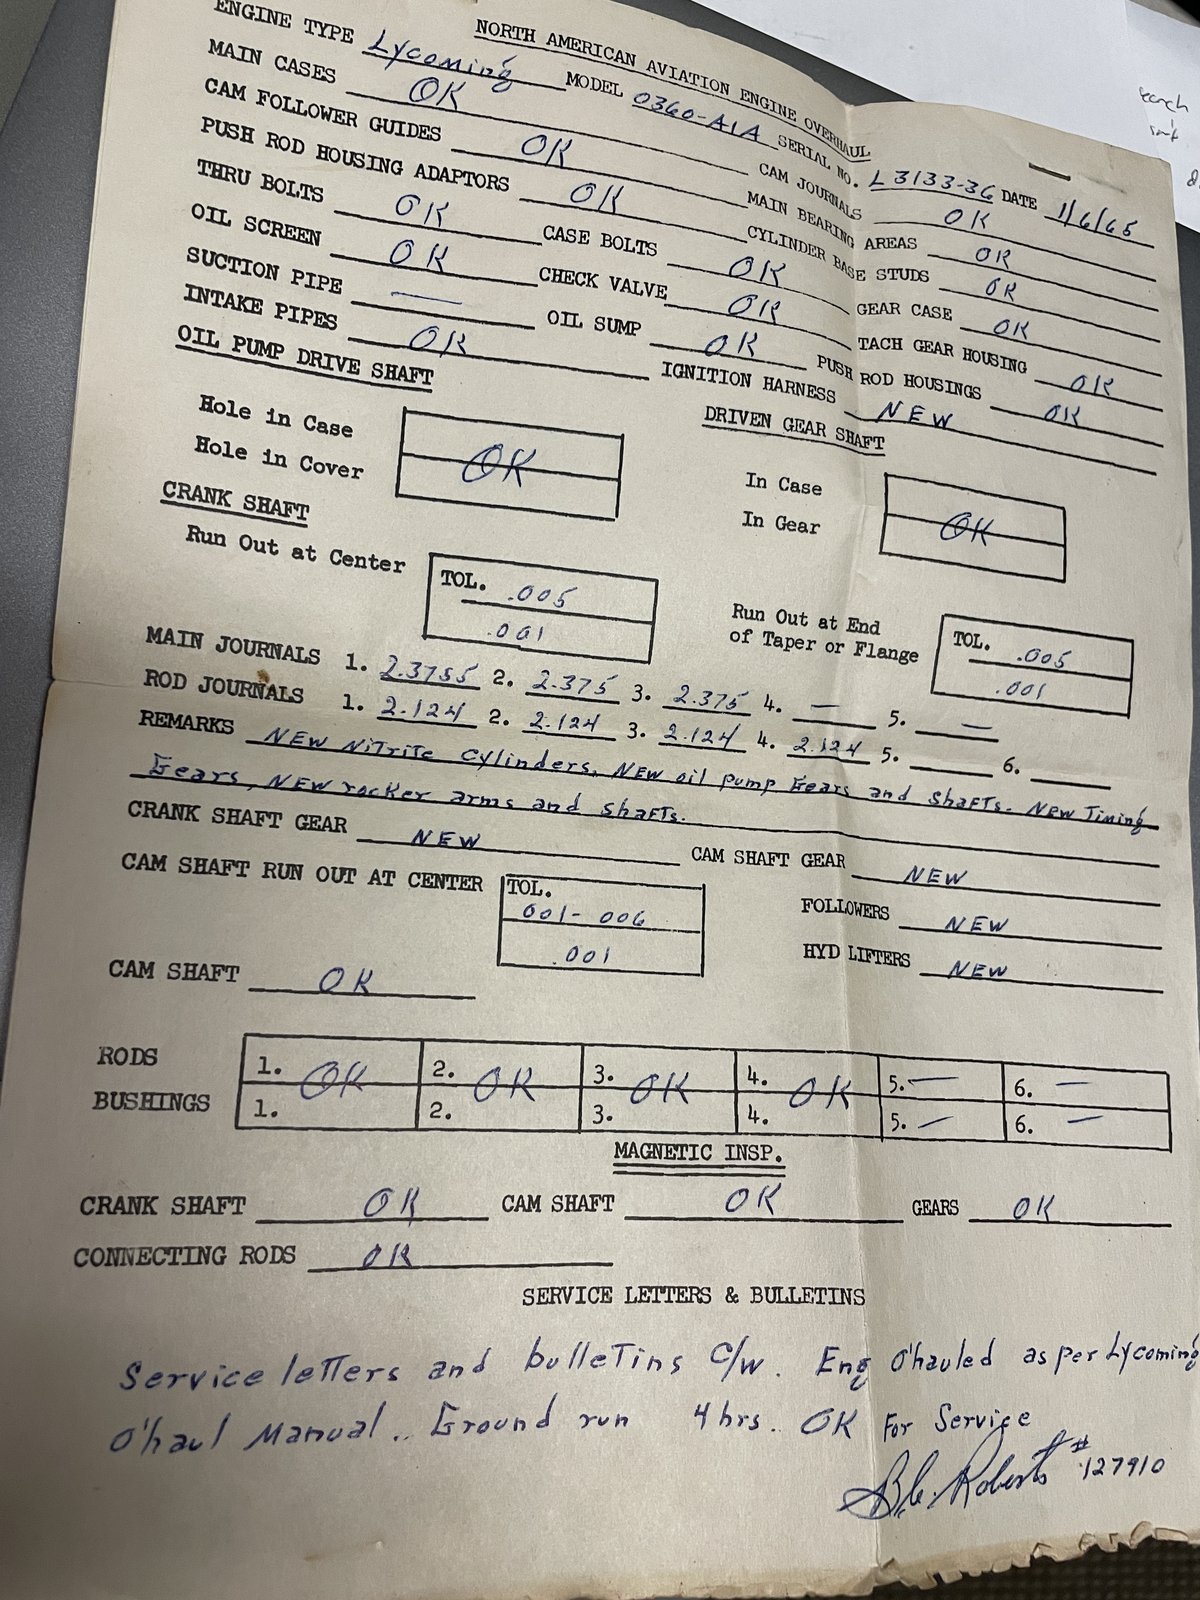 NORTH AMERICAN AVIATION ENGINE OVERHAUL
ENGINE TYPE Lycoming MODEL O360-A1A SERIAL NO. L3133-36 DATE 1/6/65
MAIN CASES OK CAM JOURNALS OK
CAM FOLLOWER GUIDES OK MAIN BEARING AREAS OK
PUSH ROD HOUSING ADAPTORS OK CYLINDER BASE STUDS OK
THRU BOLTS OK CASE BOLTS OK GEAR CASE OK
OIL SCREEN OK CHECK VALVE OK TACH GEAR HOUSING OK
SUCTION PIPE — OIL SUMP OK PUSH ROD HOUSINGS OK
INTAKE PIPES OK IGNITION HARNESS NEW
OIL PUMP DRIVE SHAFT DRIVEN GEAR SHAFT
Hole in Case OK In Case OK
Hole in Cover In Gear
CRANK SHAFT
Run Out at Center TOL. .005 Run Out at End TOL. .005
.001 of Taper or Flange .001
MAIN JOURNALS 1. 2.3755 2. 2.375 3. 2.375 4. — 5. —
ROD JOURNALS 1. 2.124 2. 2.124 3. 2.124 4. 2.124 5. 6.
REMARKS NEW Nitrite Cylinders, NEW oil pump Gears and Shafts. NEW Timing
Gears, NEW rocker arms and shafts.
CRANK SHAFT GEAR NEW CAM SHAFT GEAR NEW
CAM SHAFT RUN OUT AT CENTER TOL. 001-006 FOLLOWERS NEW
.001 HYD LIFTERS NEW
CAM SHAFT OK
RODS 1. OK 2. OK 3. OK 4. OK 5. — 6. —
BUSHINGS 1. 2. 3. 4. 5. — 6. —
MAGNETIC INSP.
CRANK SHAFT OK CAM SHAFT OK GEARS OK
CONNECTING RODS OK
SERVICE LETTERS & BULLETINS
Service letters and bulletins C/W. Eng O'hauled as per Lycoming
O'haul Manual.. Ground run 4 hrs. OK For Service
Roberts #127910